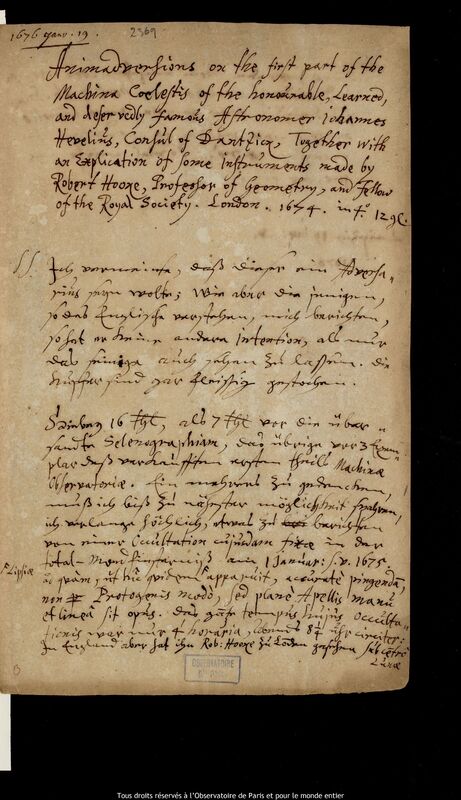 1676 Janv. 19. 2369
Animadversions on the first part of the
Machina Coelestis of the honourable, Learned,
and deservedly famous Astronomer Johannes
Hevelius, Consul of Dantzick, Together with
an Explication of some instruments made by
Robert Hooke, Professor of Geometry, and Fellow
of the Royal Society. London. 1674. in 4.º 12 gl.
Ich vermeinte, daß dieser ein Adversa„
rius seyn wolte; Wie aber die jenigen,
so das Englische verstehen, mich berichten,
so hat er keine andere Intention, als nur
das seinige auch sehen zu lassen. die
Kupffer sind gar fleissig gestochen.
16 Thl, als 7 Thl vor die über„
sandte Selenographiam, das übrige vor 3 Exem„
plar deß verkaufften ersten theils Machinæ
Observatoriæ. Ein mehrers zu gedencken,
muß ich biß zu nähster möglichkeit sparen,
ich verlange höchlich, etwas zu berichten
von einer Occultation cujusdam fixæ in der
total-Mondfinsterniß am 1 Januar: s.v. 1675.
Lipsiæ
apparuit, accurate pingenda,
non Protogenis modo, sed plane Apellis manu
et linea sit opus. das gantze tempus hujus Occulta„
tionis war nur horaria, 8½ uhr circiter:
In England aber hat ihn Rob: Hooke zu London gesehen sub centro
Lunæ
OBSERVATOIRE
DE PARIS
Tous droits réservés à l'Observatoire de Paris et pour le monde entier